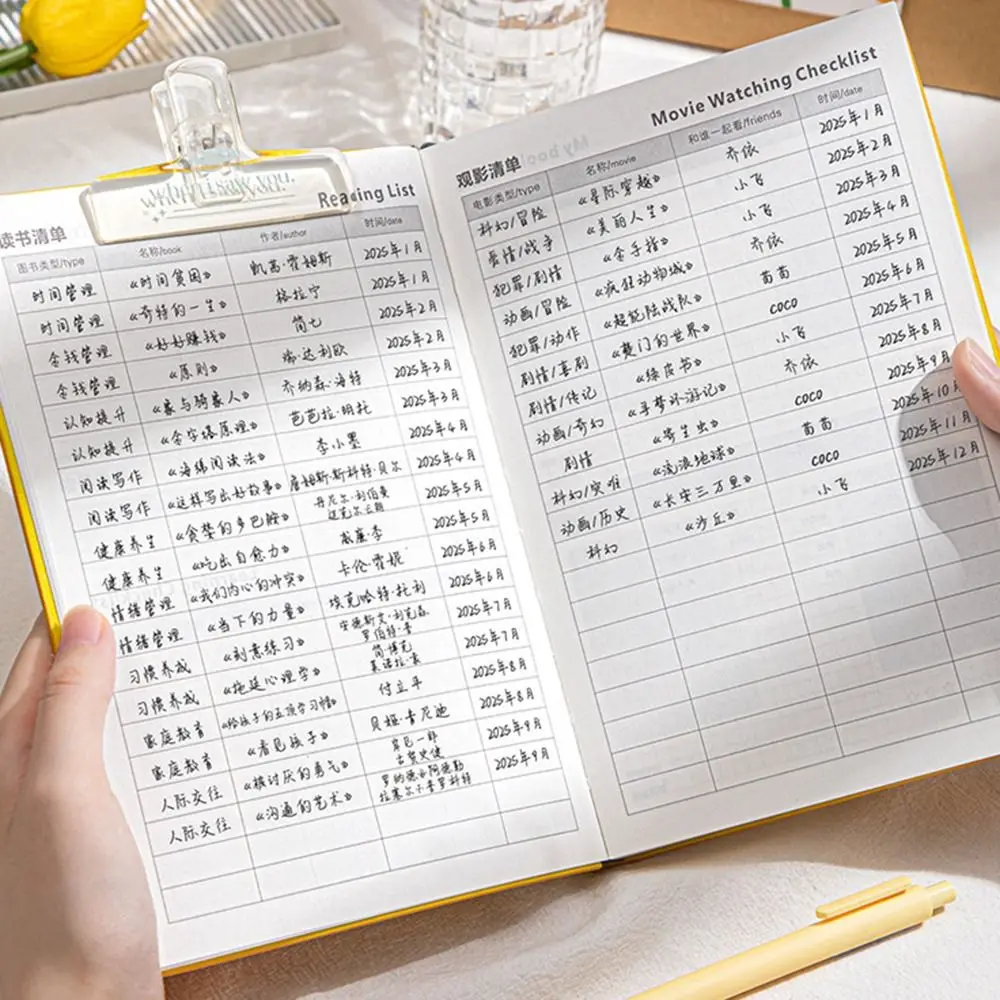 When I saw you,
Reading List
读书清单
图书类型/type 名称/book 作者/author 时间/date
时间管理 《时间贫困》 凯茜·霍姆斯 2025年1月
时间管理 《奇特的一生》 格拉宁 2025年1月
金钱管理 《好好赚钱》 简七 2025年2月
金钱管理 《原则》 瑞·达利欧 2025年2月
认知提升 《象与骑象人》 乔纳森·海特 2025年3月
认知提升 《金字塔原理》 芭芭拉·明托 2025年3月
阅读写作 《海绵阅读法》 李小墨 2025年4月
阅读写作 《这样写出好故事》 詹姆斯·斯科特·贝尔 2025年4月
健康养生 《贪婪的多巴胺》 丹尼尔·利伯曼 2025年5月
健康养生 《吃出自愈力》 威廉·李 2025年5月
情绪管理 《我们内心的冲突》 卡伦·霍妮 2025年6月
情绪管理 《当下的力量》 埃克哈特·托利 2025年6月
习惯养成 《刻意练习》 2025年7月
习惯养成 《拖延心理学》 简·博克 莱诺拉·袁 2025年7月
家庭教育 付立平 2025年8月
家庭教育 《看见孩子》 贝姬·肯尼迪 2025年8月
人际交往 《被讨厌的勇气》 岸见一郎 古贺史健 2025年9月
人际交往 《沟通的艺术》 罗纳德·阿德勒 2025年9月
Movie Watching Checklist
观影清单
电影类型/type 名称/movie 和谁一起看/friends 时间/date
科幻/冒险 《星际穿越》 乔依 2025年1月
爱情/战争 《美丽人生》 小飞 2025年2月
犯罪/剧情 《金手指》 小飞 2025年3月
动画/冒险 《疯狂动物城》 乔依 2025年4月
犯罪/动作 《超能陆战队》 苗苗 2025年5月
剧情/喜剧 《楚门的世界》 coco 2025年6月
剧情/传记 《绿皮书》 小飞 2025年7月
动画/奇幻 《寻梦环游记》 乔依 2025年8月
剧情 《寄生虫》 coco 2025年9月
科幻/灾难 《流浪地球》 苗苗 2025年10月
动画/历史 《长安三万里》 coco 2025年11月
科幻 《沙丘》 小飞 2025年12月